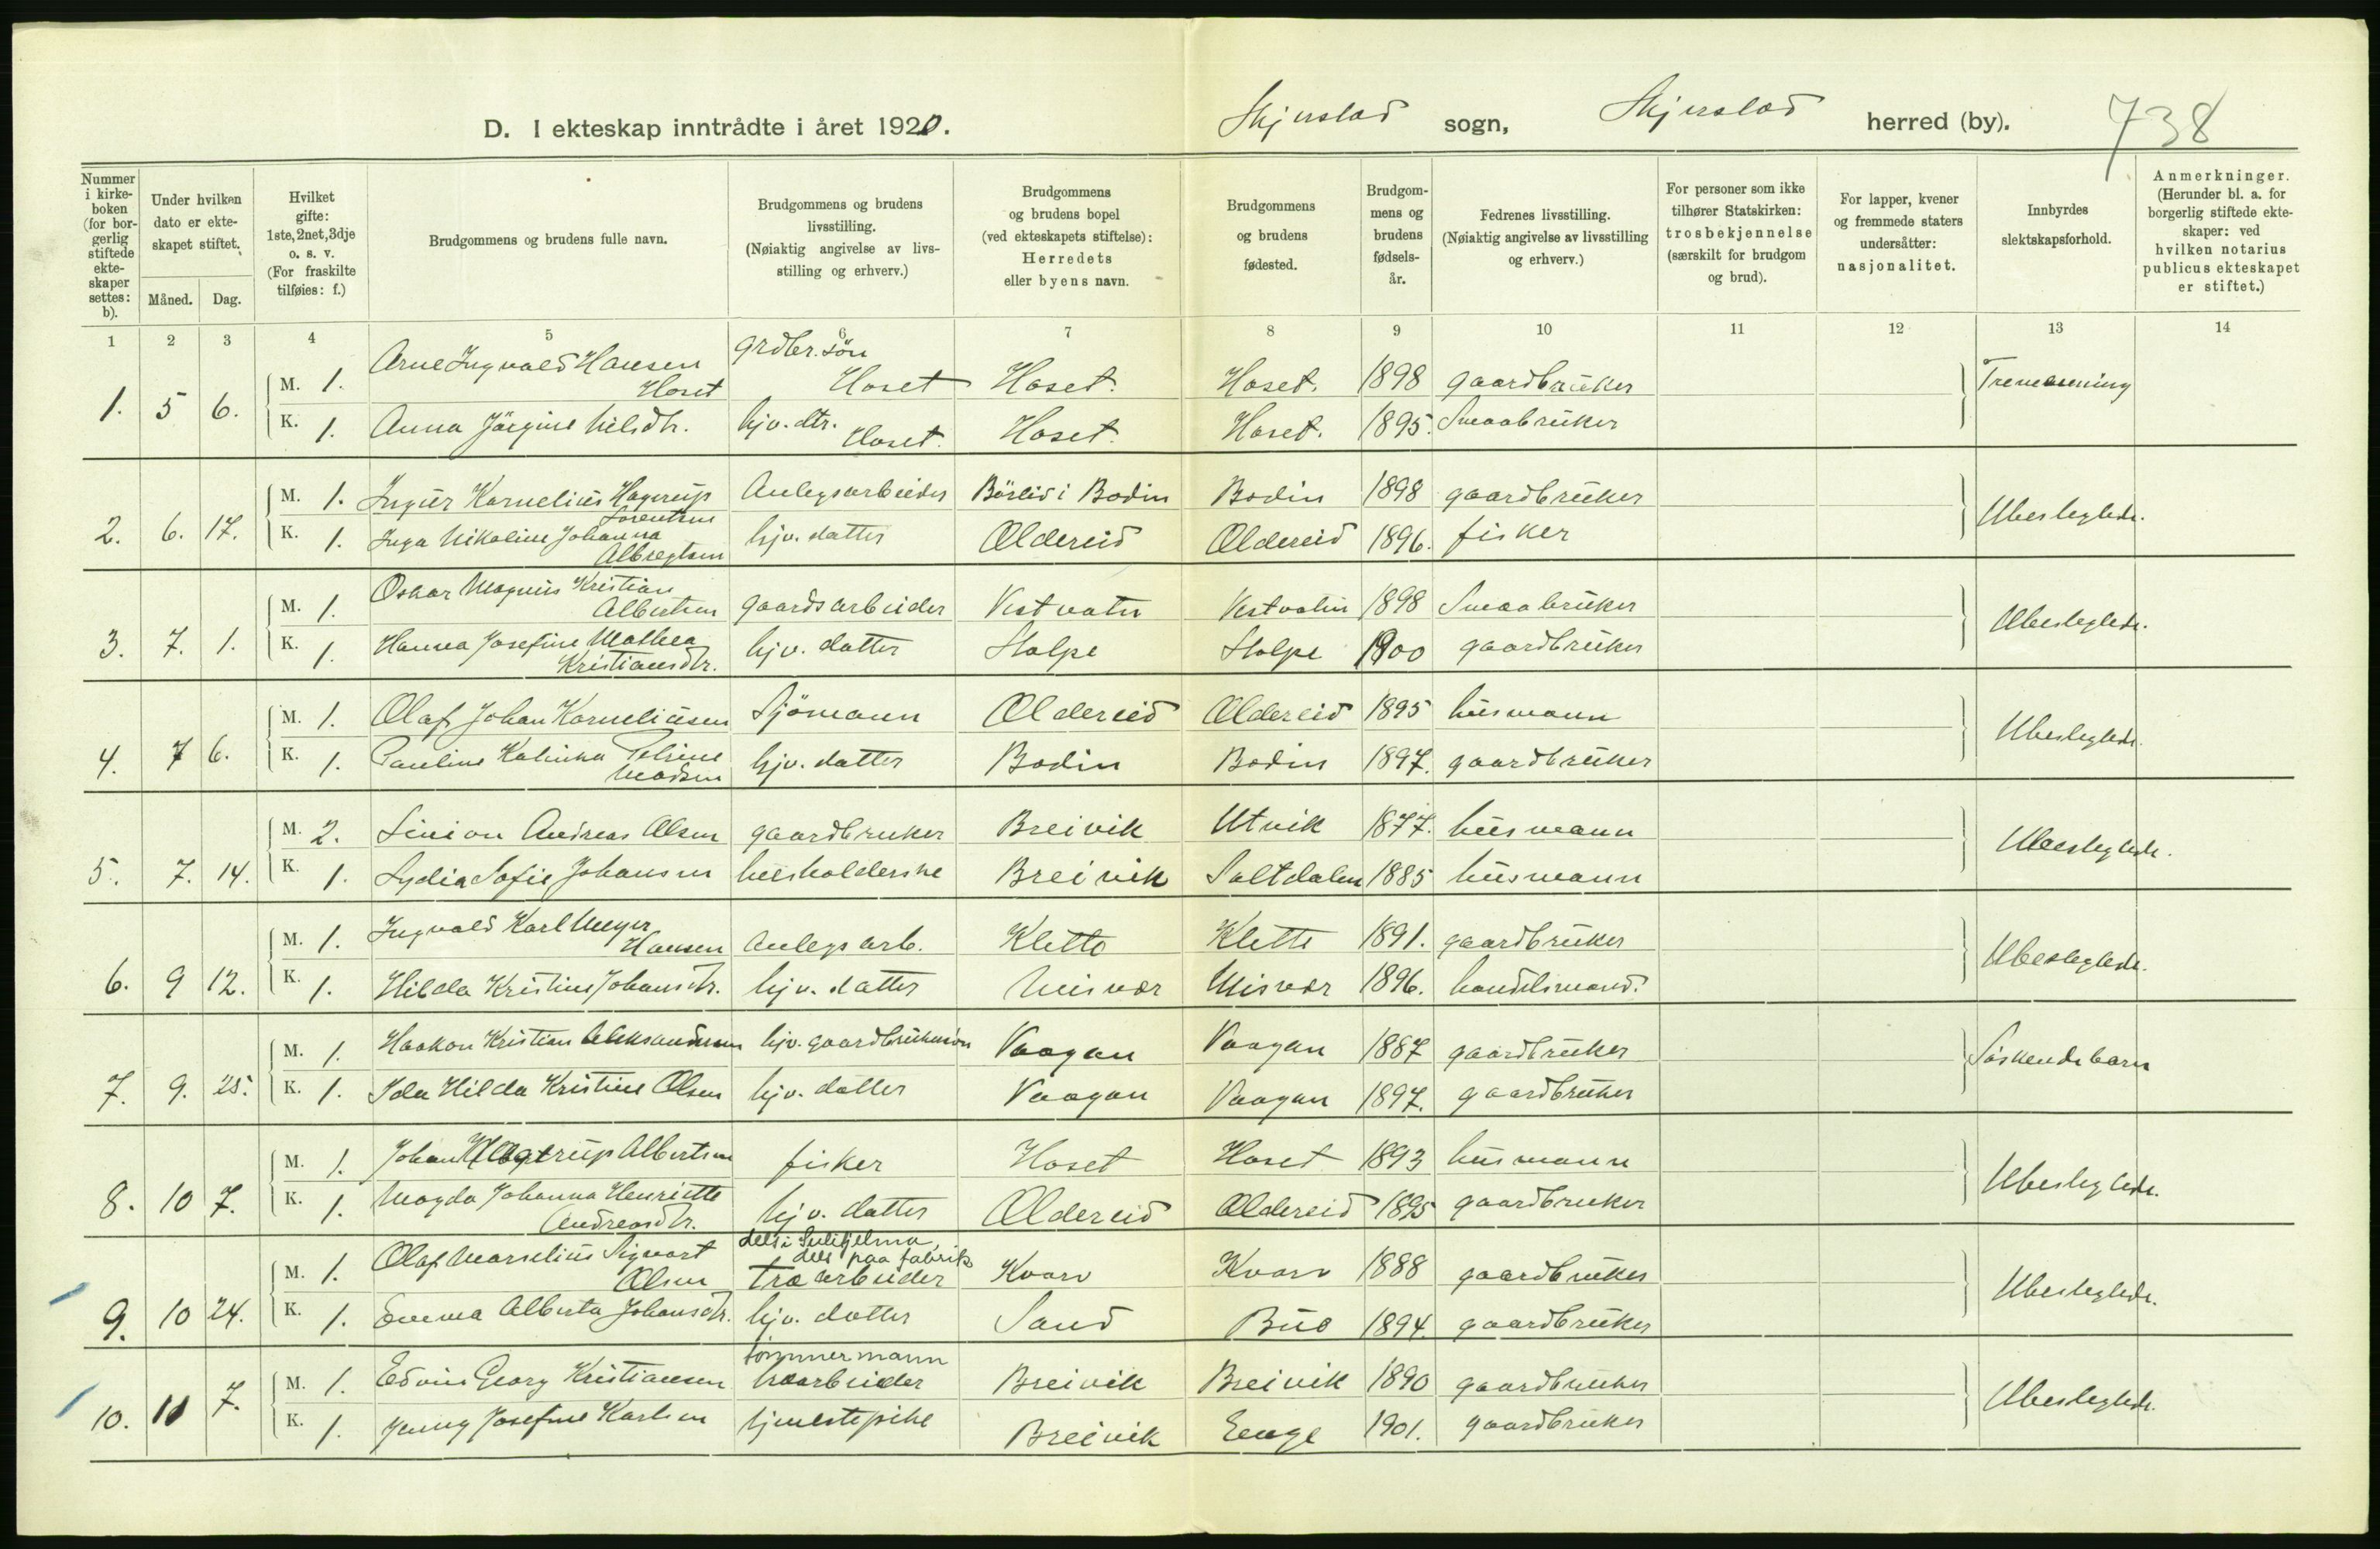 D. I ekteskap inntrådte i året 1920.
Skjerstad sogn, Skjerstad herred (by). 738
Nummer i kirke-boken (for bor-gerlig stiftede ekte-skaper settes: b).
Under hvilken dato er ekte-skapet stiftet.
Måned. Dag.
Hvilket gifte: 1ste, 2net, 3dje o. s. v. (For fraskilte tilføies: f.)
Brudgommens og brudens fulle navn.
Brudgommens og brudens livsstilling. (Nøiaktig angivelse av livs-stilling og erhverv.)
Brudgommens og brudens bopel (ved ekteskapets stiftelse): Herredets eller byens navn.
Brudgommens og brudens fødested.
Brudgom-mens og brudens fødsels-år.
Fedrenes livsstilling. (Nøiaktig angivelse av livsstilling og erhverv.)
For personer som ikke tilhører Statskirken: trosbekjennelse (særskilt for brudgom og brud).
For lapper, kvener og fremmede staters undersåtter: nasjonalitet.
Innbyrdes slektskapsforhold.
Anmerkninger. (Herunder bl. a. for borgerlig stiftede ekte-skaper: ved hvilken notarius publicus ekteskapet er stiftet.)
1 2 3 4 5 6 7 8 9 10 11 12 13 14
1. 5 6. M. 1. Arne Ingvald Hansen Hoset grdbr. sön Hoset Hoset. Hoset. 1898 gaardbruker Tremenning
K. 1. Anna Jörgine Nilsdtr. hjv. dtr. Hoset. Hoset. Hoset. 1895. Smaabruker
2. 6. 17. M. 1. Ingvär Kornelius Hagerup Lorentsen Anlegsarbeider Börlid i Bodin Bodin 1898 gaardbruker Ubeslegtede.
K. 1. Inga Nikoline Johanna Albregtsen hjv. datter Oldereid Oldereid 1896. fisker
3. 7. 1. M. 1. Oskar Magnus Kristian Albertsen gaardsarbeider Vestvatn Vestvatn 1898 Smaabruker Ubeslegtede.
K. 1. Hanna Josefine Mathea Kristiansdtr. hjv. datter Stolpe Stolpe 1900 gaardbruker
4. 7 6. M. 1. Olaf Johan Korneliusen Sjömann Oldereid Oldereid 1895 husmann Ubeslegtede.
K. 1. Pauline Katinka Petrine Madsen hjv. datter Bodin Bodin 1897. gaardbruker
5. 7. 14. M. 2. Simon Andreas Olsen gaardbruker Breivik Utvik 1877. husmann Ubeslegtede.
K. 1. Lydia Sofie Johansen husholderske Breivik Saltdalen 1885 husmann
6. 9 12. M. 1. Ingvald Karl Meyer Hansen Anlegsarb. Klette Klette 1891. gaardbruker Ubeslegtede.
K. 1. Hilda Kristine Johansdtr. hjv. datter Misvær Misvær 1896. handelsmand.
7. 9. 25. M. 1. Haakon Kristian Aleksandersen hjv. gaardbrukersön Vaagan Vaagan 1887 gaardbruker Söskendebarn
K. 1. Ida Hilda Kristine Olsen hjv. datter Vaagan Vaagan 1897. gaardbruker
8. 10 7. M. 1. Johan Hagerup Albertsen fisker Hoset Hoset 1893 husmann Ubeslegtede.
K. 1. Magda Johanna Henriette Andreasdtr. hjv. datter Oldereid Oldereid 1895 gaardbruker
9. 10 24. M. 1. Olaf Marselius Sigvart Olsen dels i Sulitjelma, dels paa fabrik træarbeider Kvarv Kvarv 1888 gaardbruker Ubeslegtede.
K. 1. Emma Alberta Johansdtr. hjv. datter Sand Bua 1894. gaardbruker
10. 11 7. M. 1. Edvin Georg Kristiansen tømmermann træarbeider Breivik Breivik 1890 gaardbruker Ubeslegtede.
K. 1. Jenny Josefine Karlsen tjenestepike Breivik Enge 1901. gaardbruker